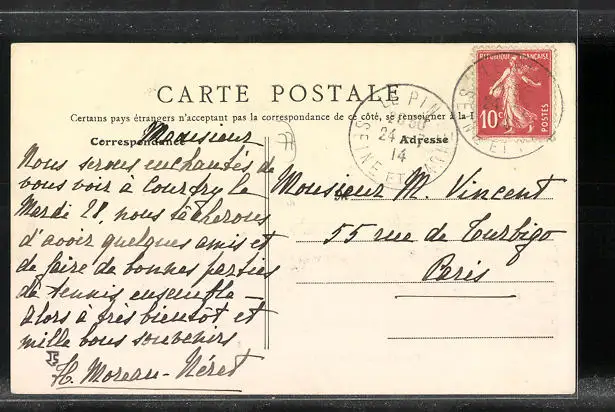 CARTE POSTALE
Certains pays étrangers n'acceptent pas la correspondance de ce côté, se renseigner à la
Correspondance
Adresse
REPUBLIQUE FRANÇAISE
10c
POSTES
LE PIN
24
14
SEINE ET MARNE
Monsieur
Nous serons enchantés de
vous voir à Courtry le
Mardi 28, nous tâcherons
d'avoir quelques amis et
de faire de bonnes parties
de tennis ensemble —
Alors à très bientôt et
mille bons souvenirs
H. Moreau-Néret
Monsieur M. Vincent
55 rue de Turbigo
Paris